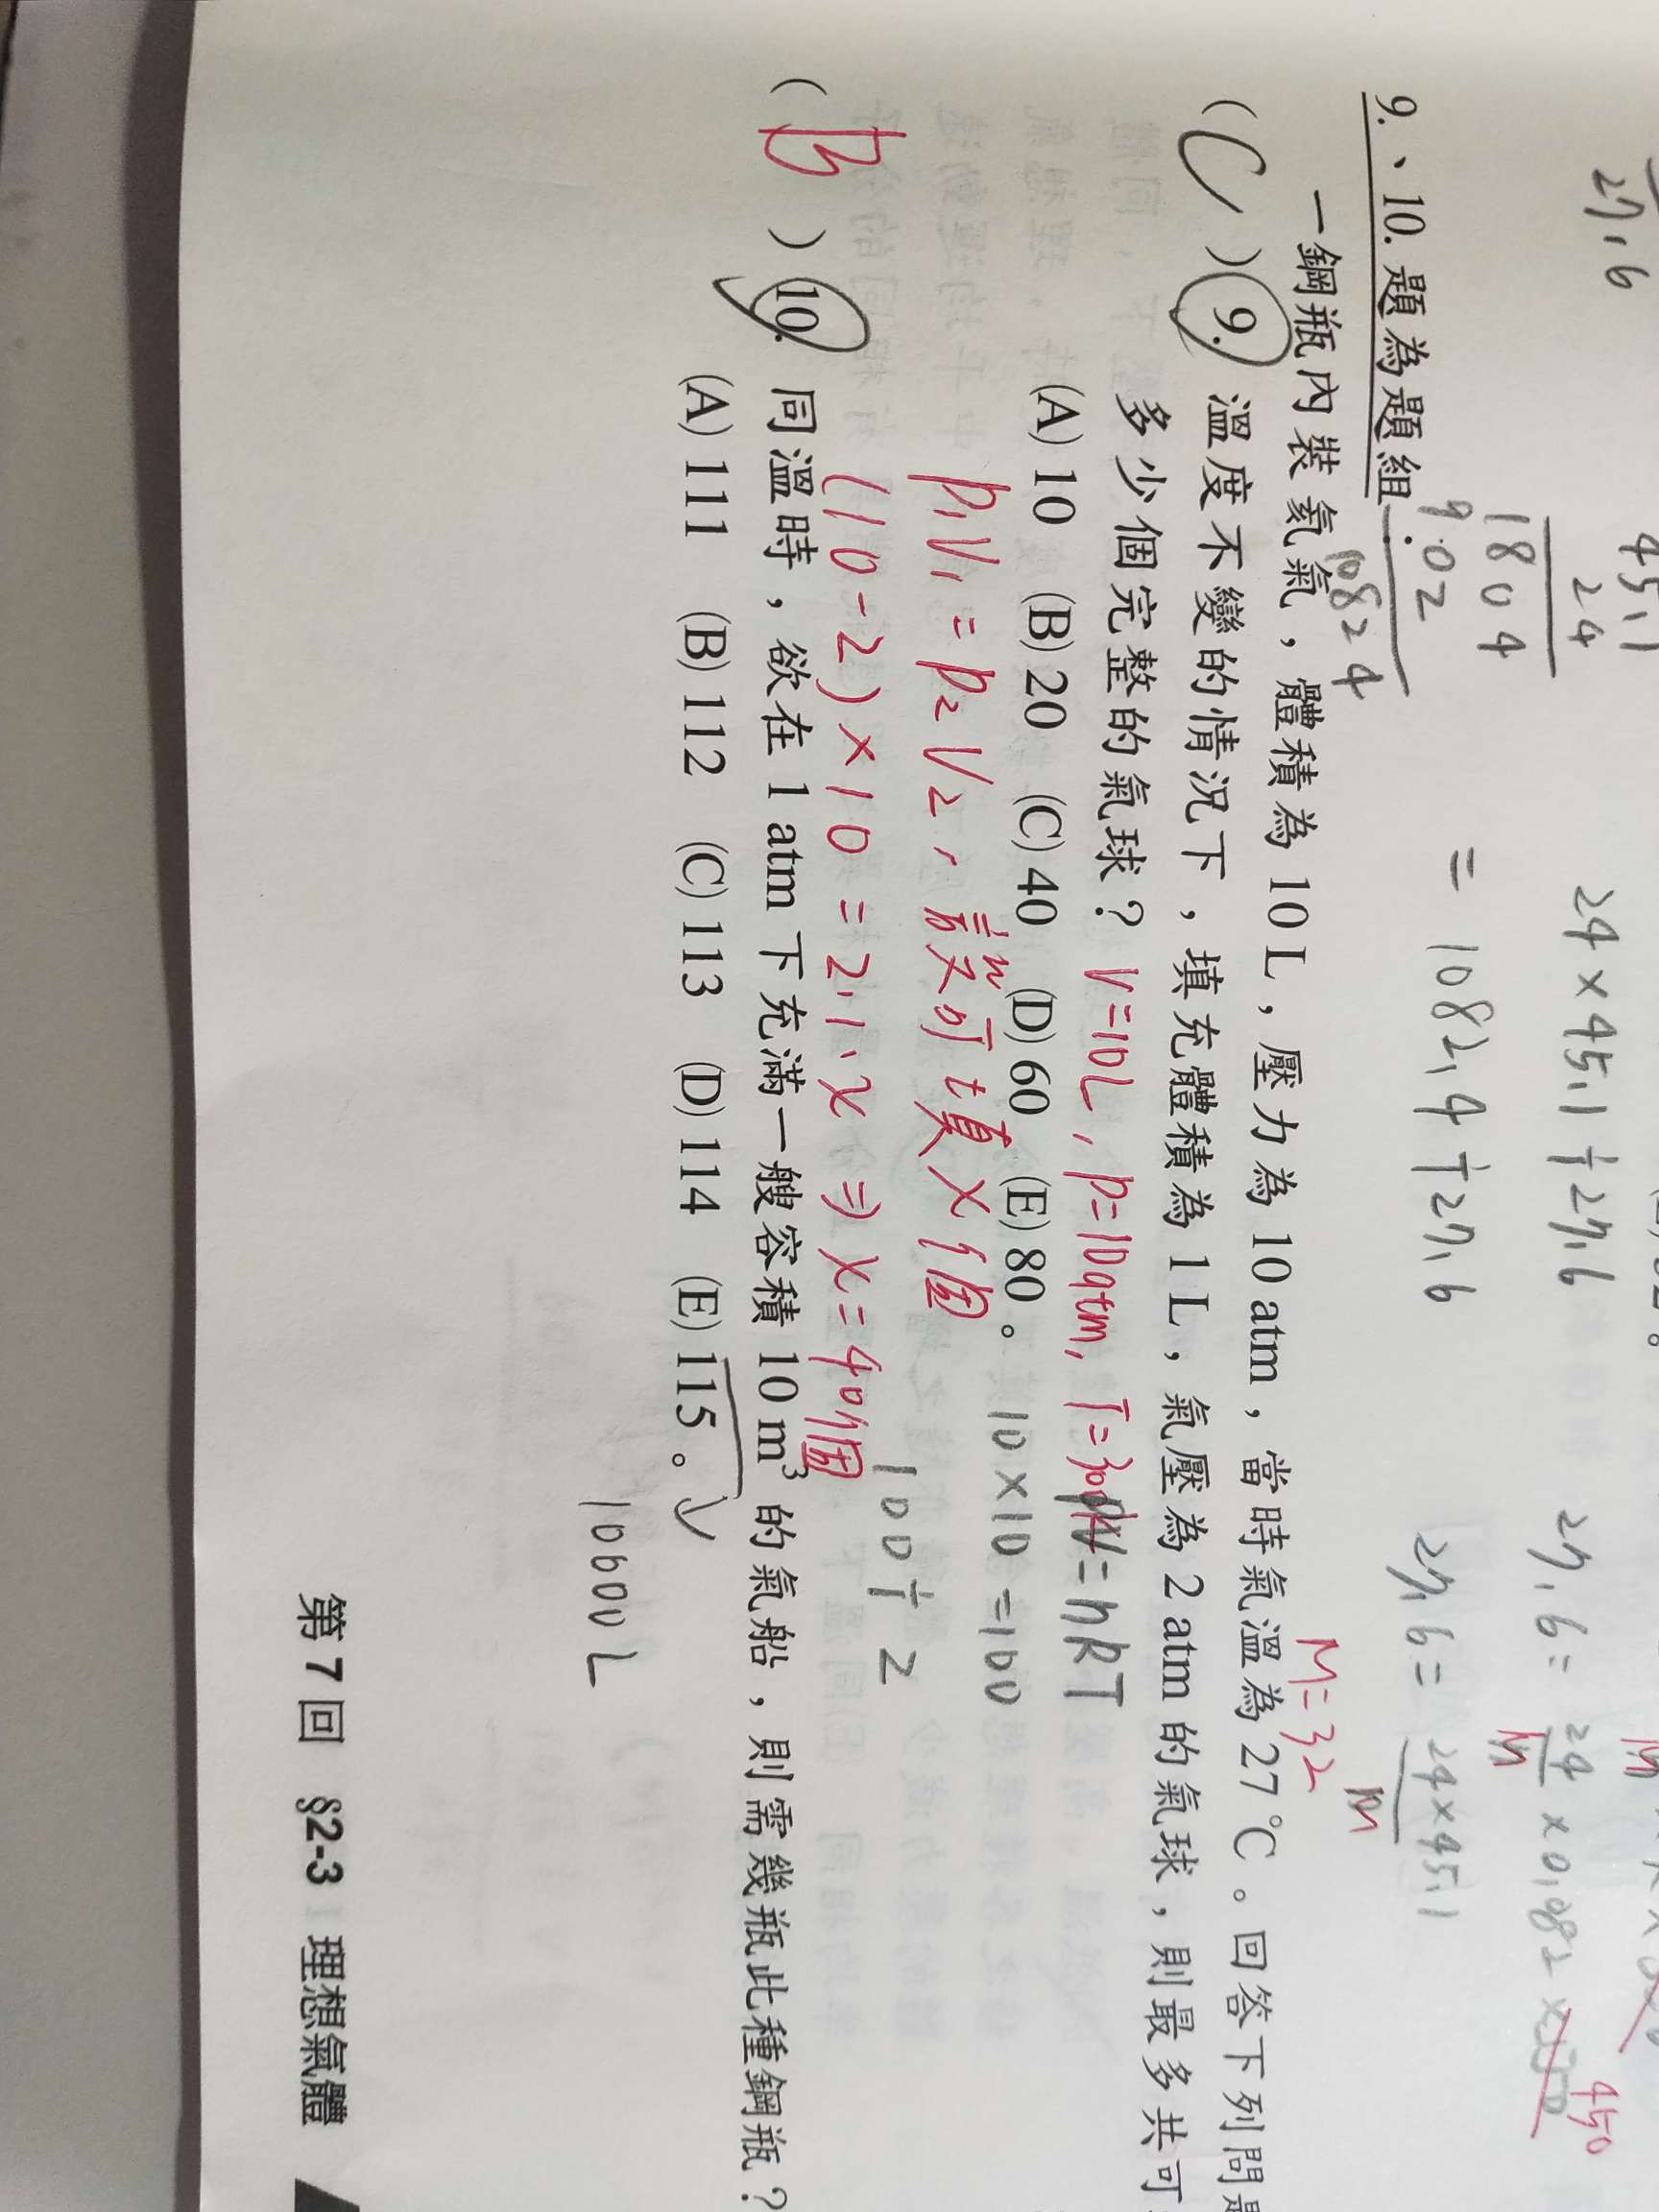 27.6
45.1
24
1804
9.02
1082.4
24×45.1÷27.6
= 1082.4÷27.6
27.6=
24
M
×0.082×
450
27.6=
24×45.1
M
M=32
9.、10.題為題組
一鋼瓶內裝氦氣，體積為 10 L，壓力為 10 atm，當時氣溫為 27 ℃。回答下列問
( C ) 9. 溫度不變的情況下，填充體積為 1 L，氣壓為 2 atm 的氣球，則最多共可
多少個完整的氣球？ V=10L, P=10atm, T=300k
PV=nRT
(A) 10 (B) 20 (C) 40 (D) 60 (E) 80。
10×10=100
P₁V₁=P₂V₂，設可填X個
100÷2
(10-2)×10=2.1.X⇒X=40個
( B ) 10. 同溫時，欲在 1 atm 下充滿一艘容積 10 m³ 的氣船，則需幾瓶此種鋼瓶？
(A) 111 (B) 112 (C) 113 (D) 114 (E) 115。
10000L
第 7 回 §2-3 理想氣體